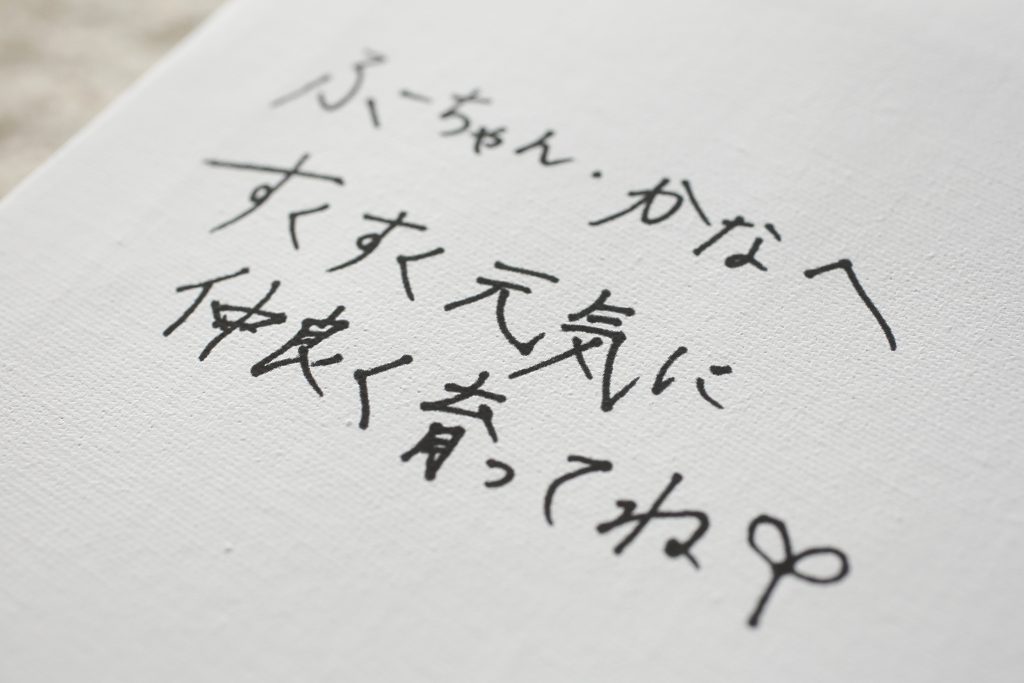 ふーちゃん・かなへ
すくすく元気に
仲良く育ってね